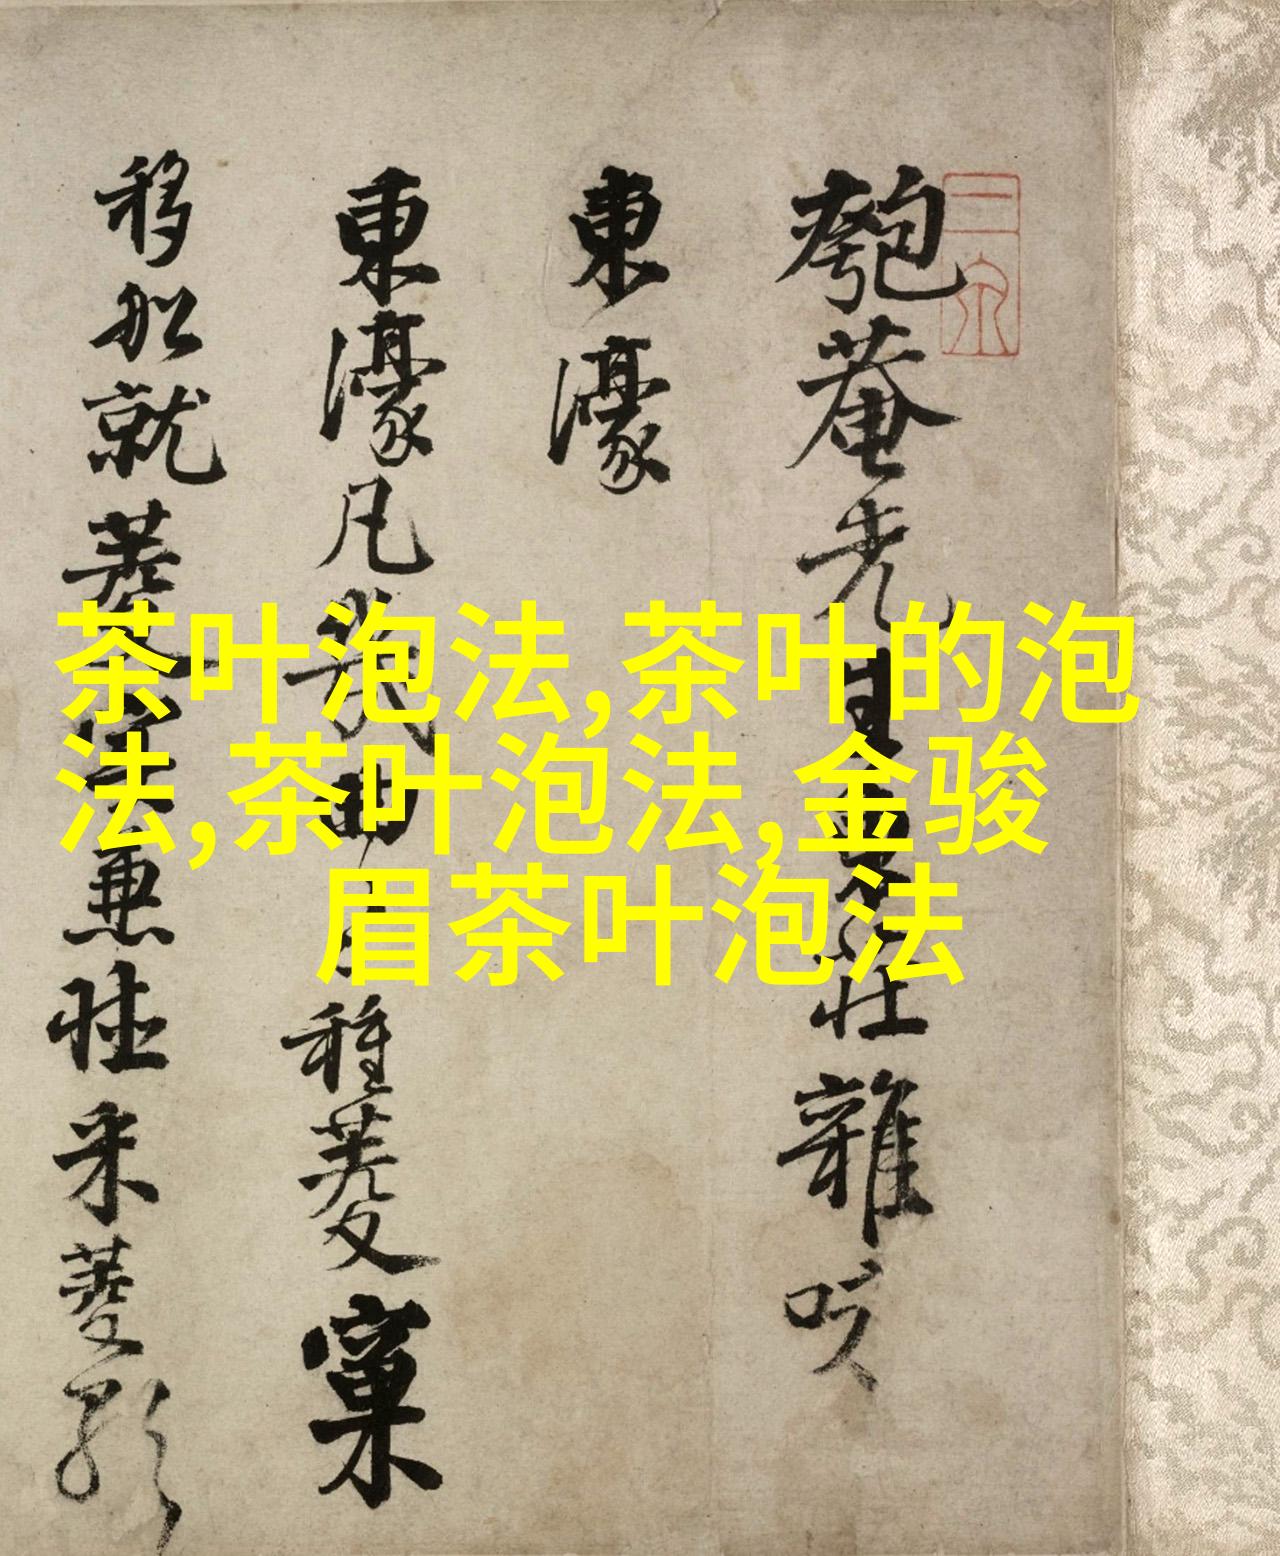 匏菴先生東莊雜咏
東濠
東濠凡幾曲
種菱窠
移船就菱
兼性采菱
茶叶泡法,茶叶的泡
法,茶叶泡法,金骏
眉茶叶泡法